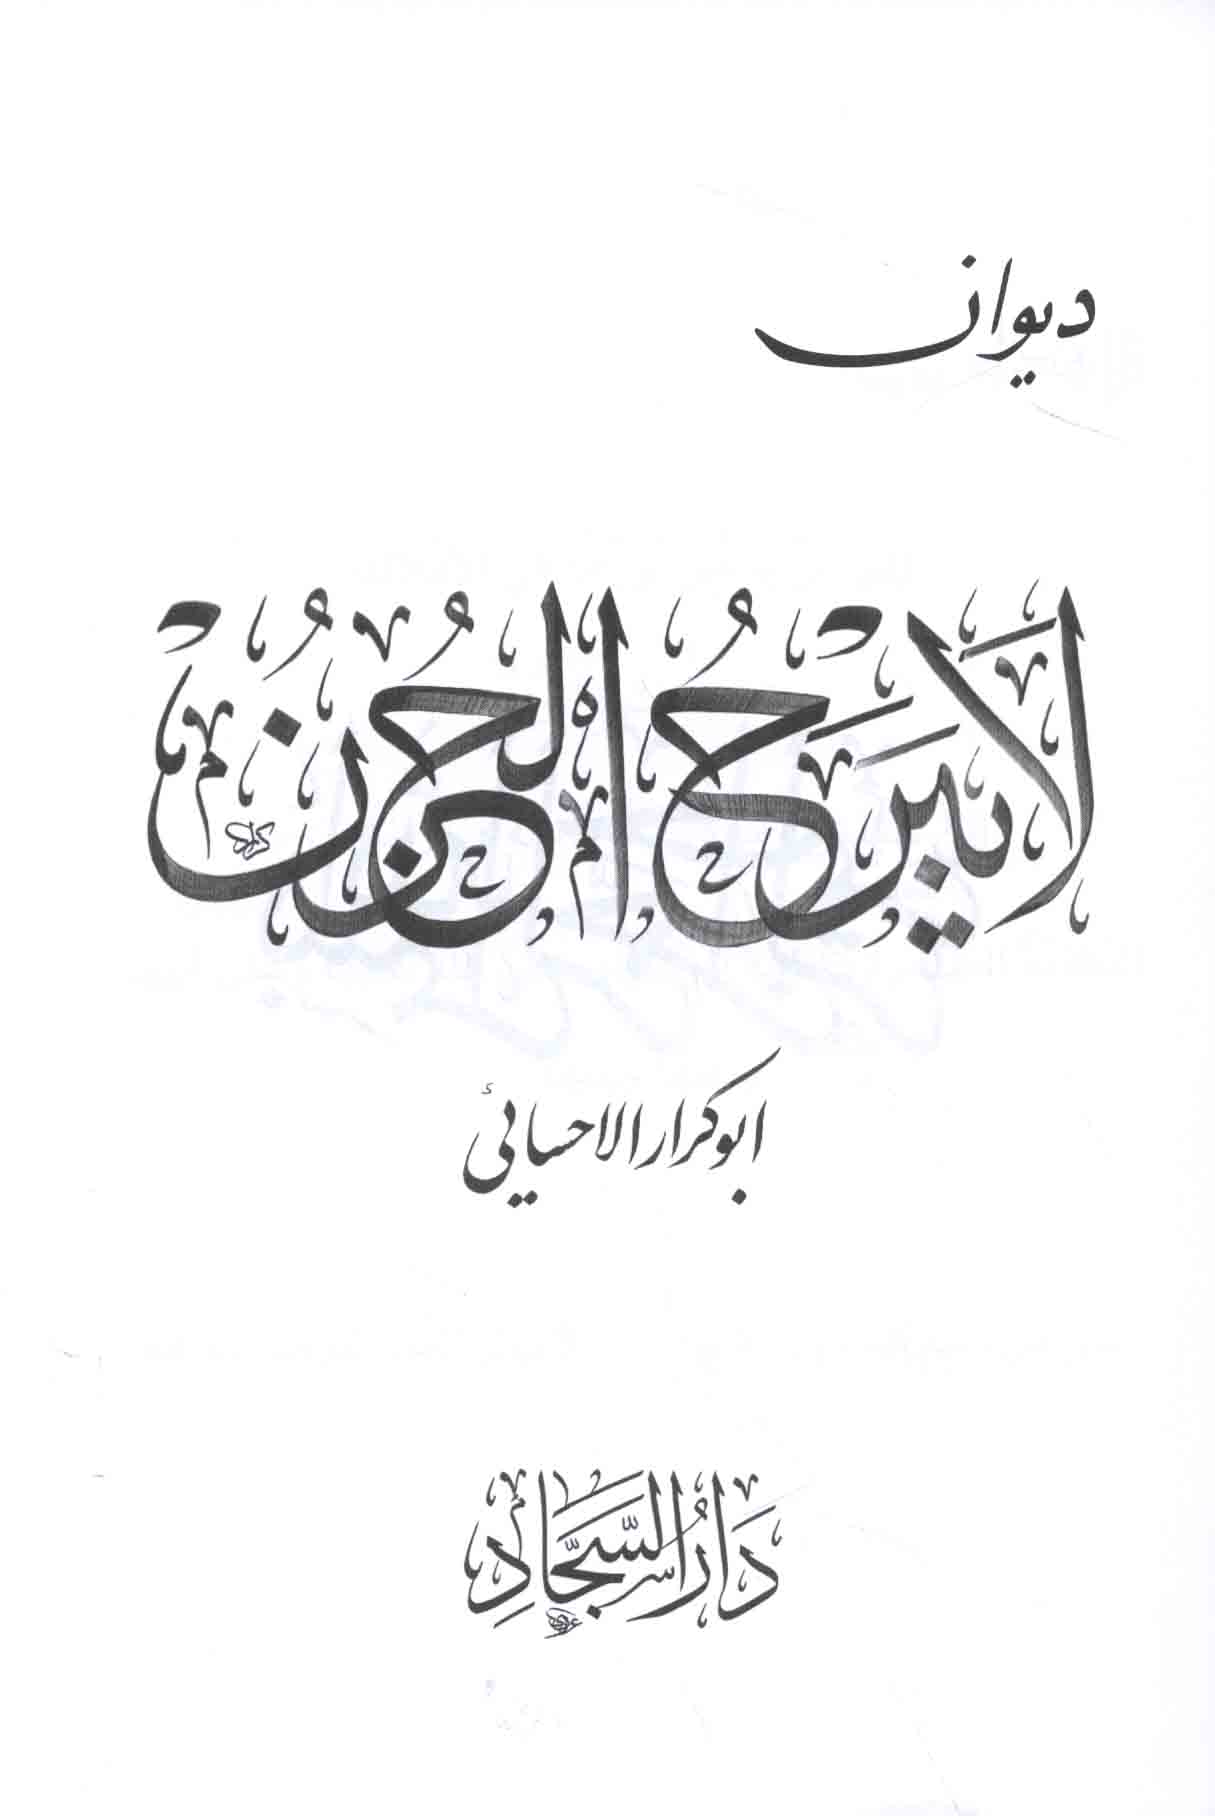 ديوان
لَا يَبْرَحُ الحُزْنُ
ابو كرار الاحسائي
دَارُ السَّجَّادِ